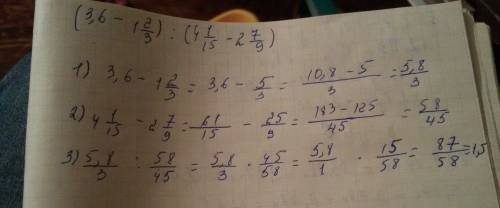 (3,6 - 1 2/3) : (4 1/15 - 2 7/9)
1) 3,6 - 1 2/3 = 3,6 - 5/3 = (10,8 - 5)/3 = 5,8/3
2) 4 1/15 - 2 7/9 = 61/15 - 25/9 = (183 - 125)/45 = 58/45
3) 5,8/3 : 58/45 = 5,8/3 · 45/58 = 5,8/1 · 15/58 = 87/58 = 1,5